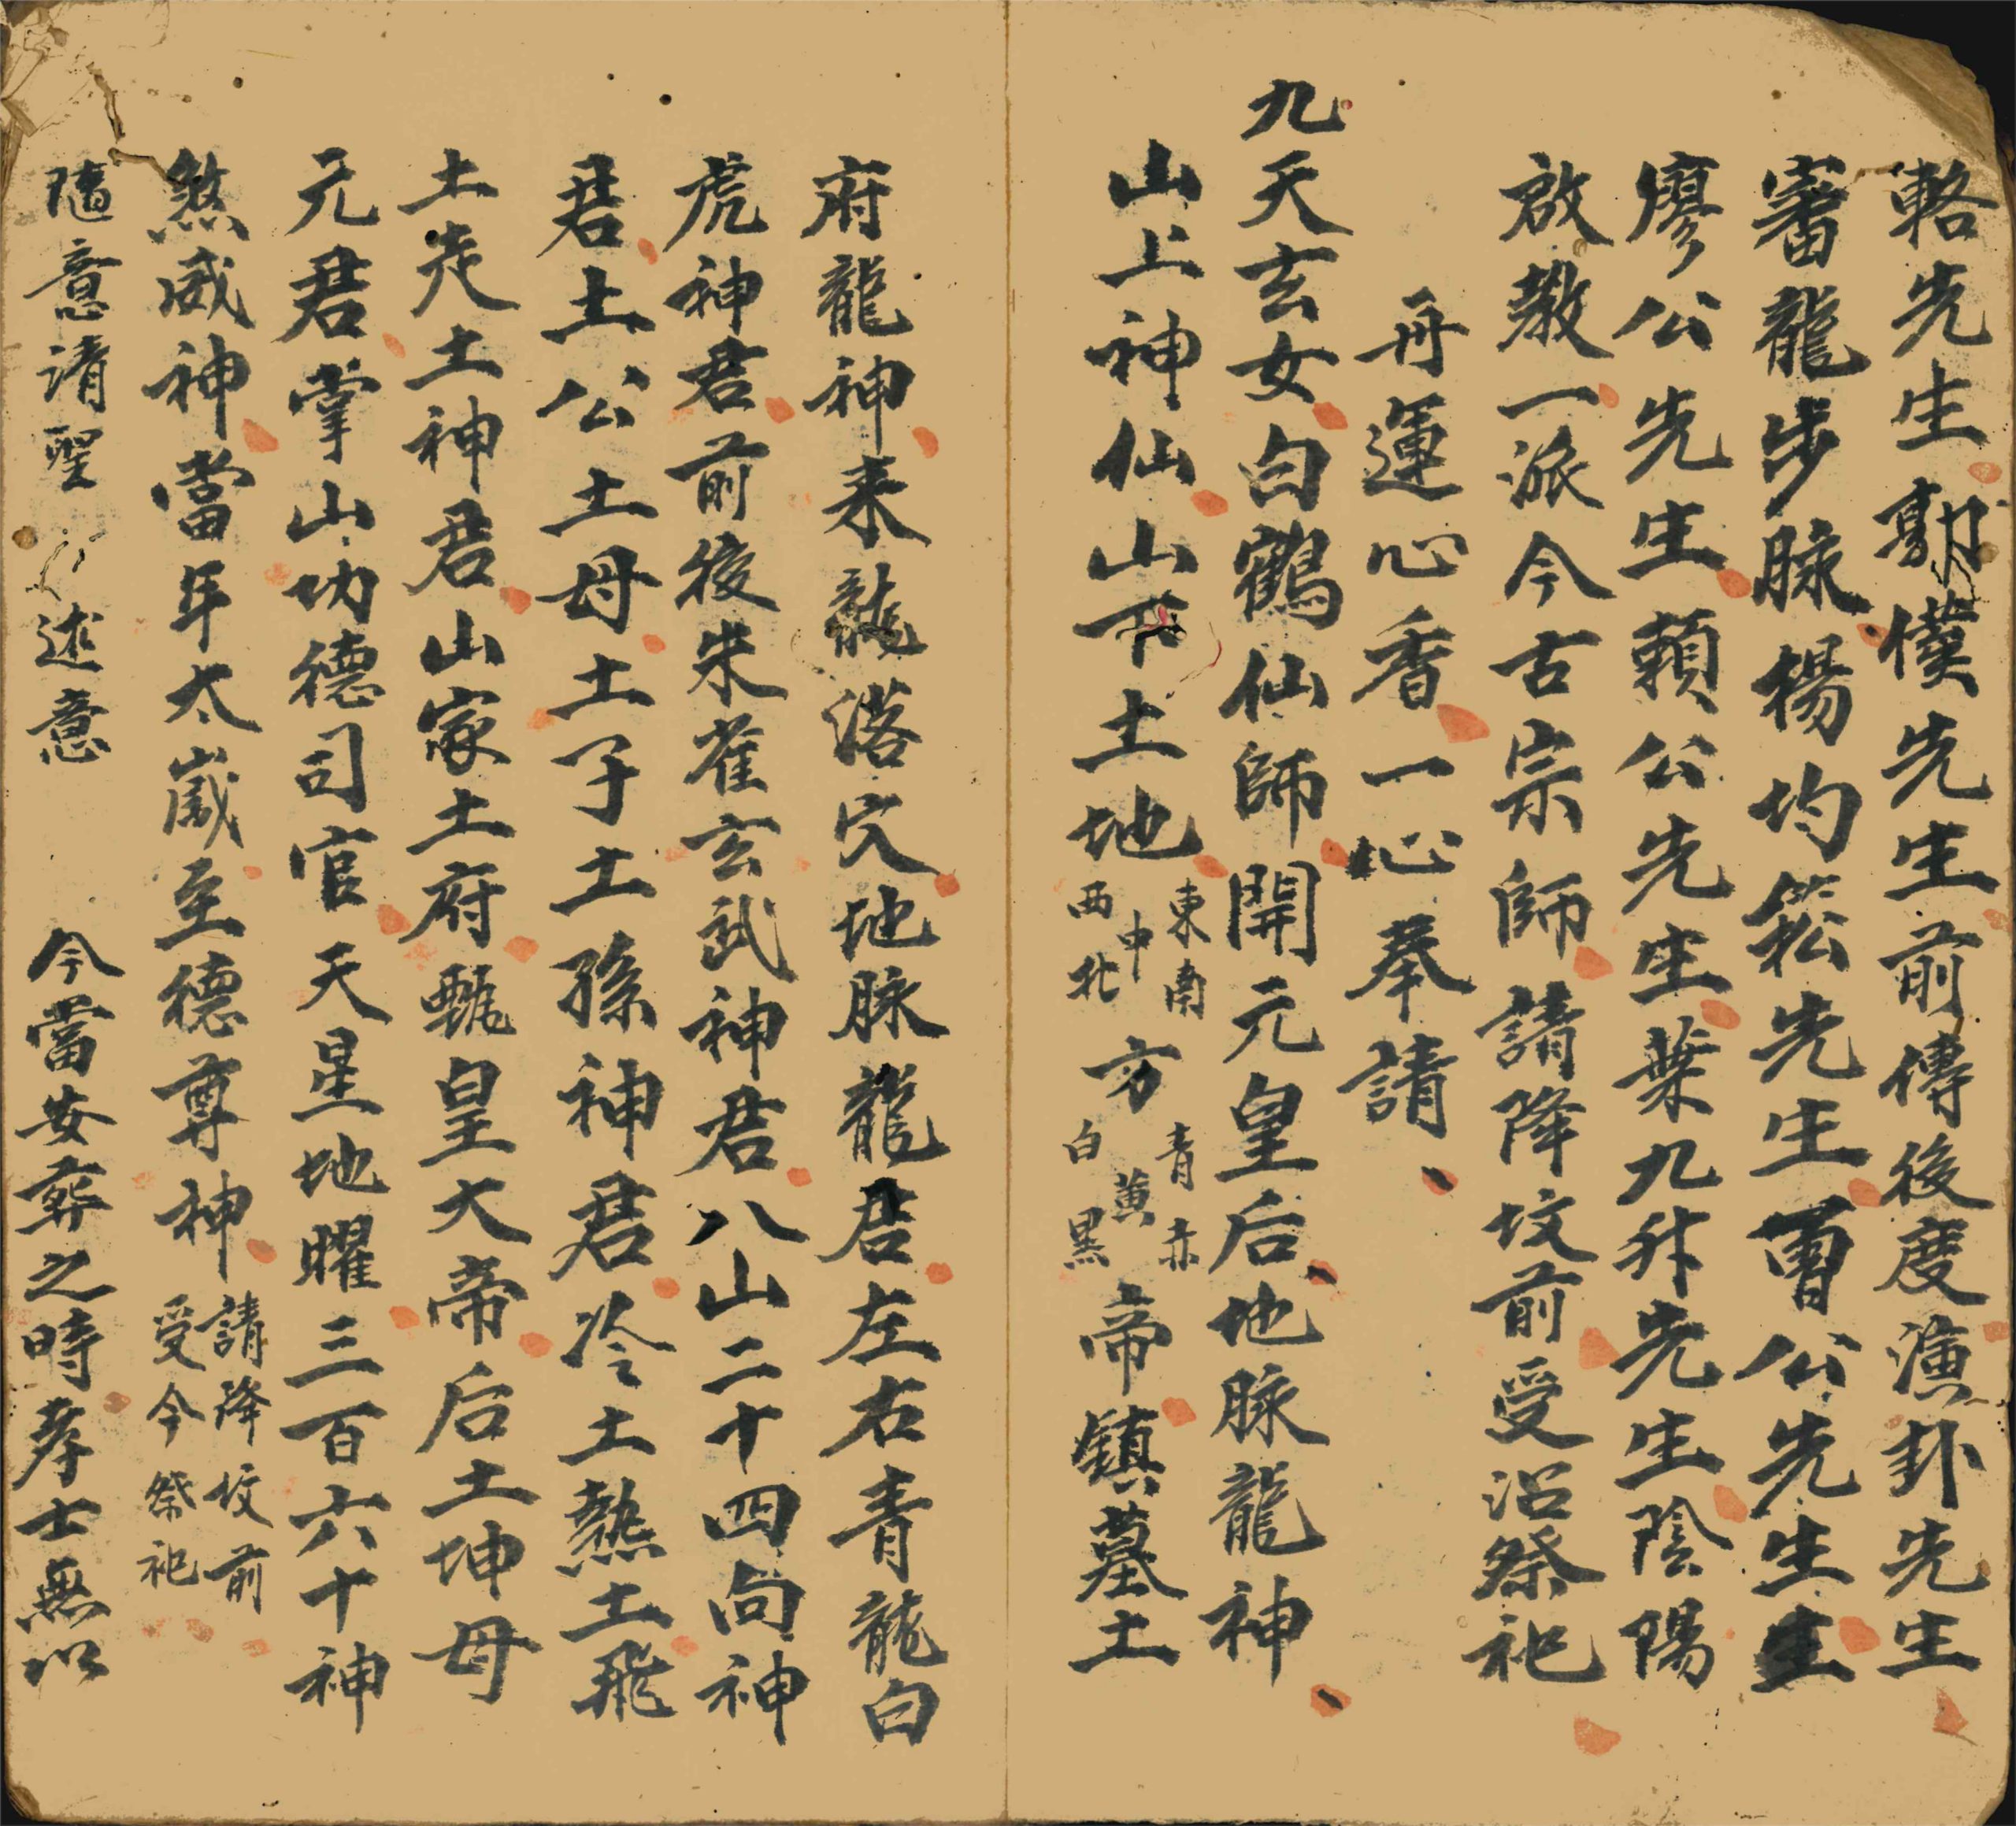 輅先生郭僕先生前傳後度演卦先生
審龍步脉楊均鬆先生曽公先生生
廖公先生賴公先生葉九升先生陰陽
啟教一派今古宗師請降坟前受沿祭祀
再運心香一心奉請
九天玄女白鶴仙師開元皇后地脉龍神
山上神仙山下土地東南中西北方青赤黄白黑帝鎮墓土
府龍神来龍落穴地脉龍君左右青龍白
虎神君前後朱雀玄武神君八山二十四向神
君土公土母土子土孫神君冷土熱土飛
土走土神君山家土府皇大帝后土坤母
元君掌山功德司官天星地曜三百六十神
煞威神當年太嵗至德尊神請降坟前受今祭祀
隨意請聖述意 今當安葬之時孝士無以